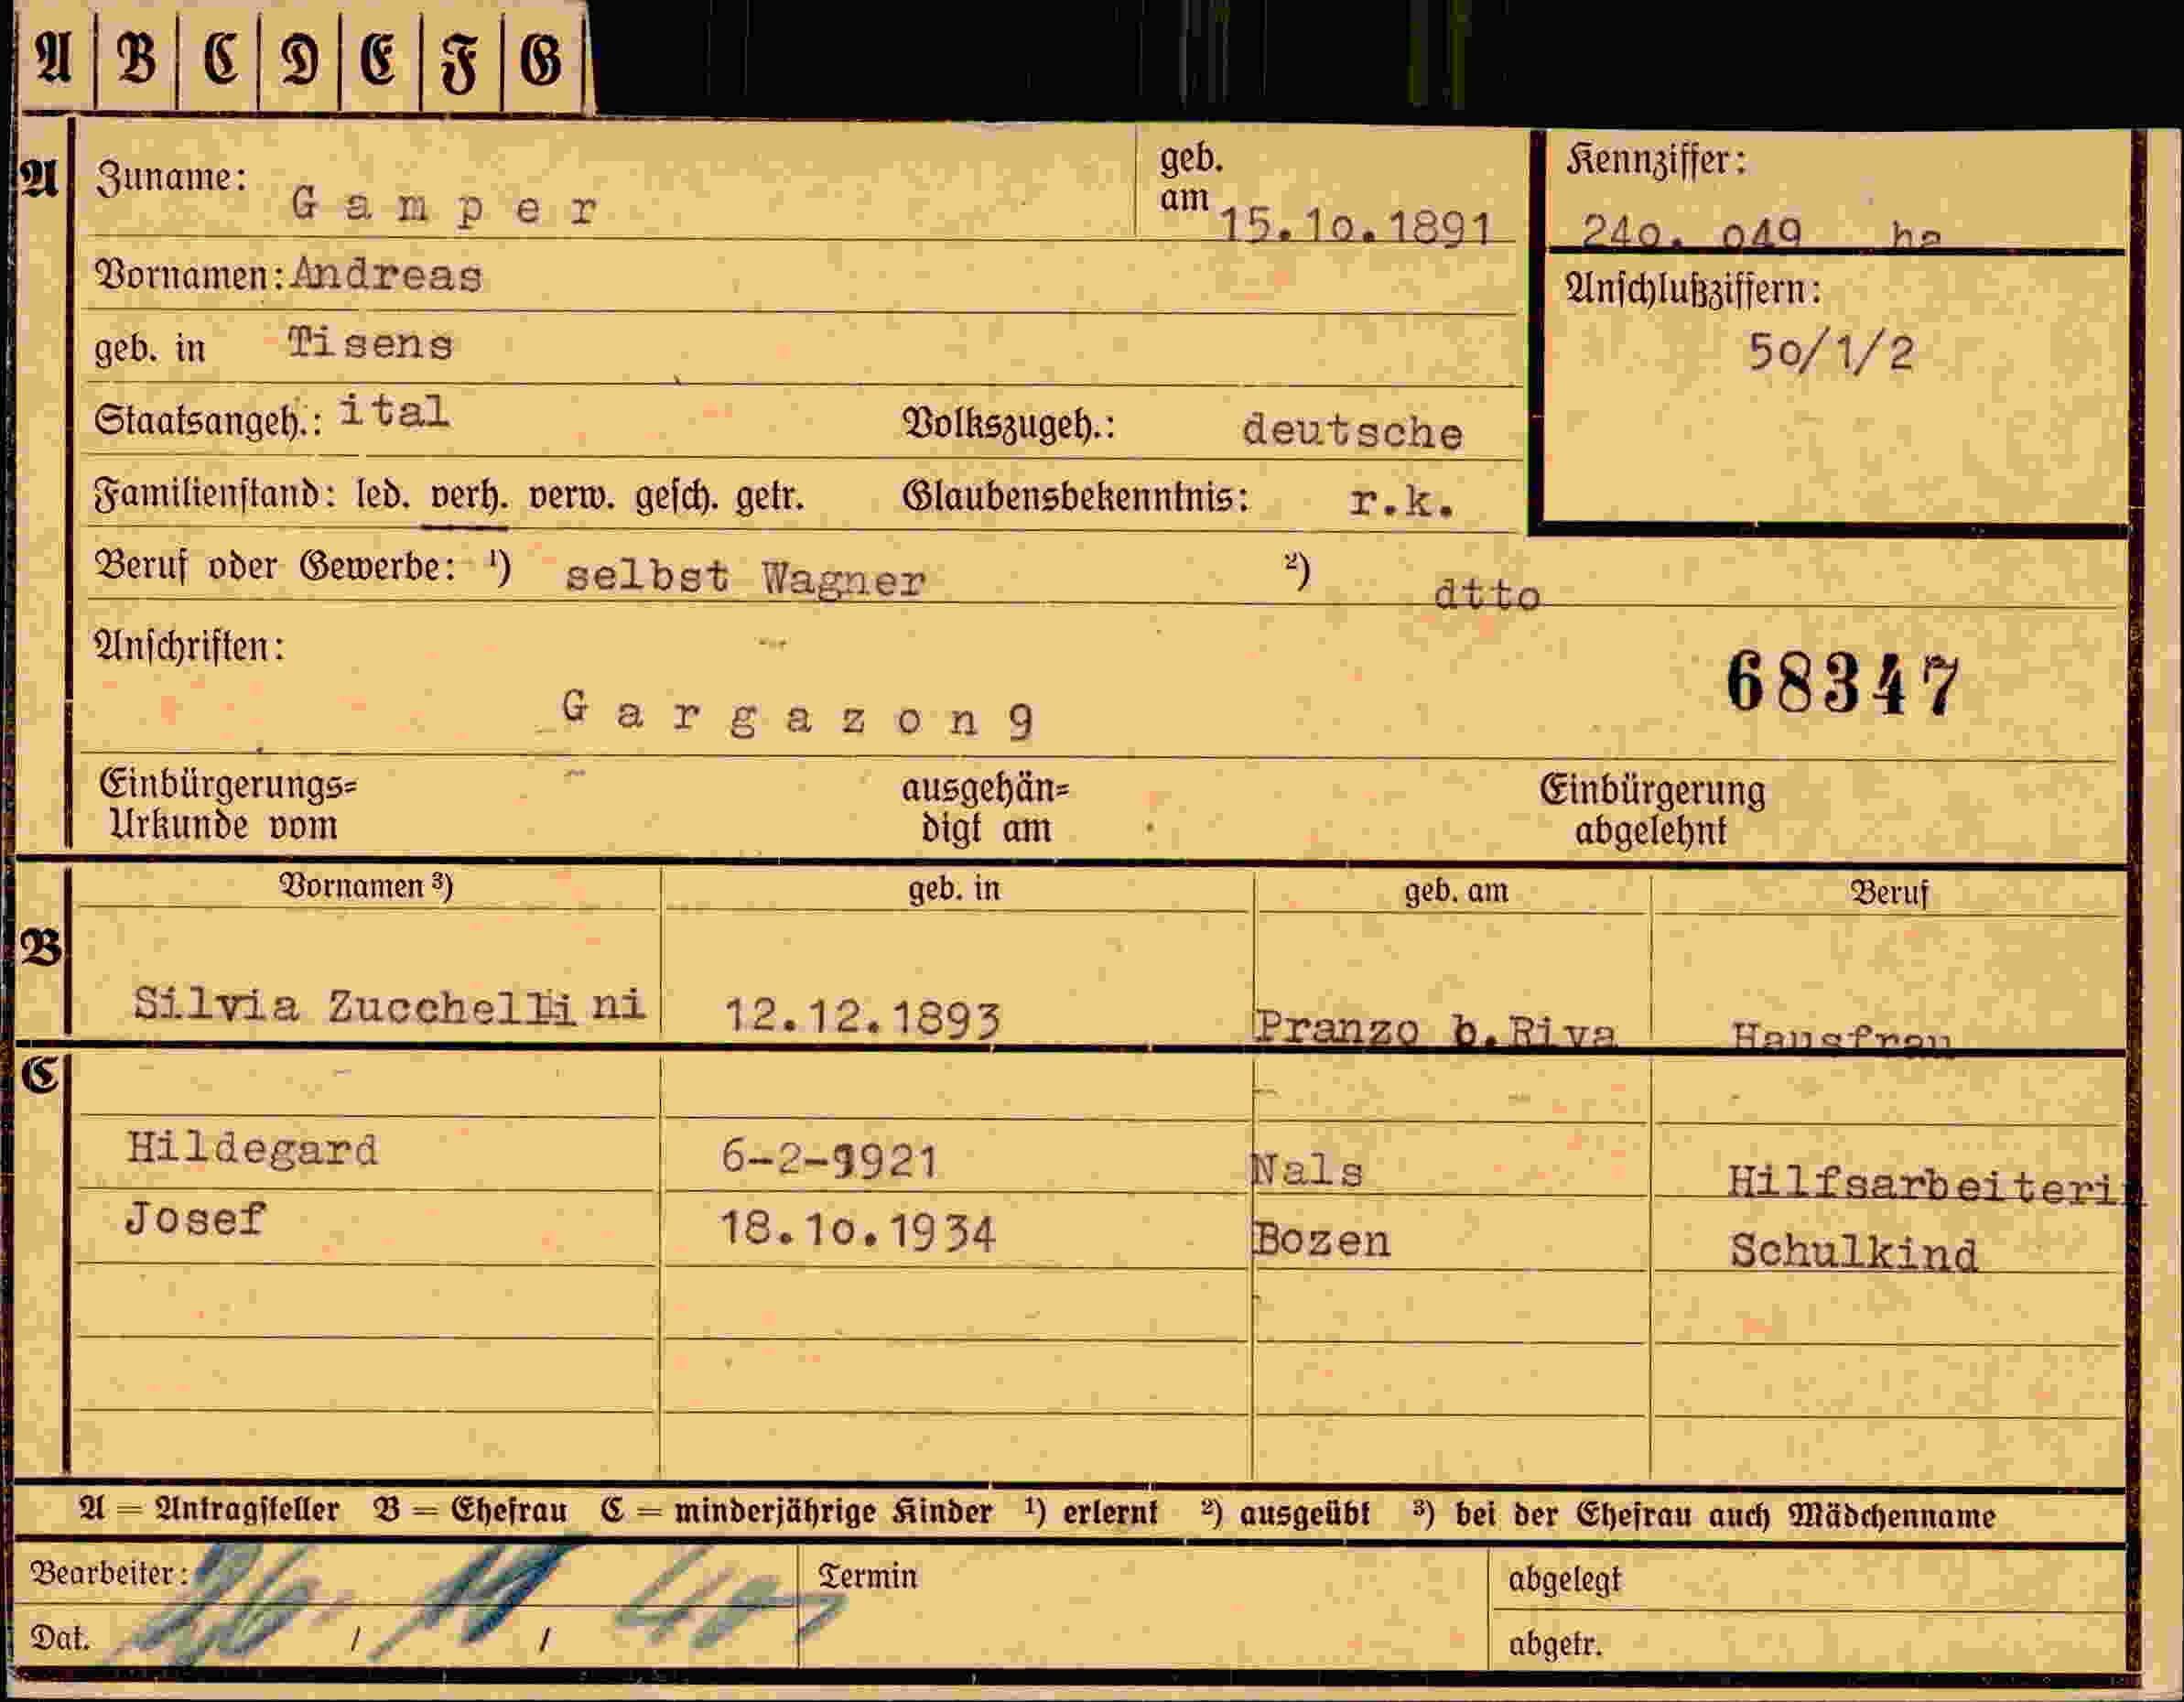 A B C D E F G
A Zuname: Gamper geb. am 15.10.1891 Kennziffer:
240. 049 ha
Vornamen: Andreas Anschlußziffern:
geb. in Tisens 50/1/2
Staatsangeh.: ital Volkszugeh.: deutsche
Familienstand: led. verh. verw. gesch. getr. Glaubensbekenntnis: r.k.
Beruf oder Gewerbe: ¹) selbst Wagner ²) dtto
Anschriften: 68347
Gargazon9
Einbürgerungs= ausgehän= Einbürgerung
Urkunde vom digt am abgelehnt
Vornamen ³) geb. in geb. am Beruf
B
Silvia 12.12.1893 Pranzo b.Riva Hausfrau
C
Hildegard 6-2-1921 Nals Hilfsarbeiterin
Josef 18.10.1934 Bozen Schulkind
A = Antragsteller B = Ehefrau C = minderjährige Kinder ¹) erlernt ²) ausgeübt ³) bei der Ehefrau auch Mädchenname
Bearbeiter: Termin abgelegt
Dat. / / abgetr.